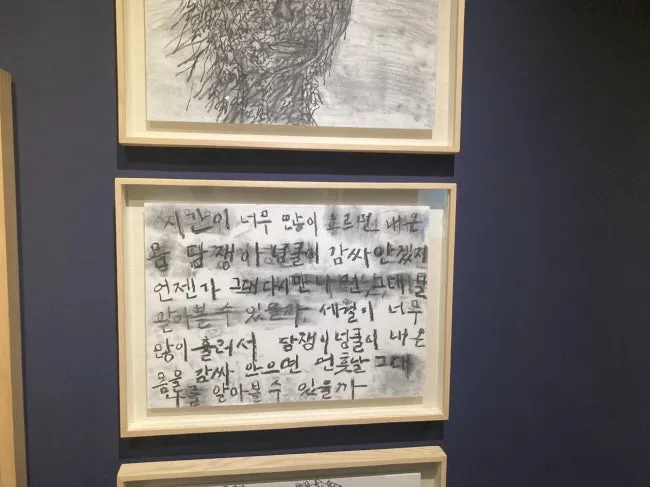 시간이 너무 많이 흐르면 내 온
몸 담쟁이 넝쿨이 감싸 안겠지
언젠가 그대 다시 만나면, 그대
알아볼 수 있을까, 세월이 너무
많이 흘러서 담쟁이 넝쿨이 내 온
몸을 감싸 안으면 먼훗날 그대
나를 알아볼 수 있을까